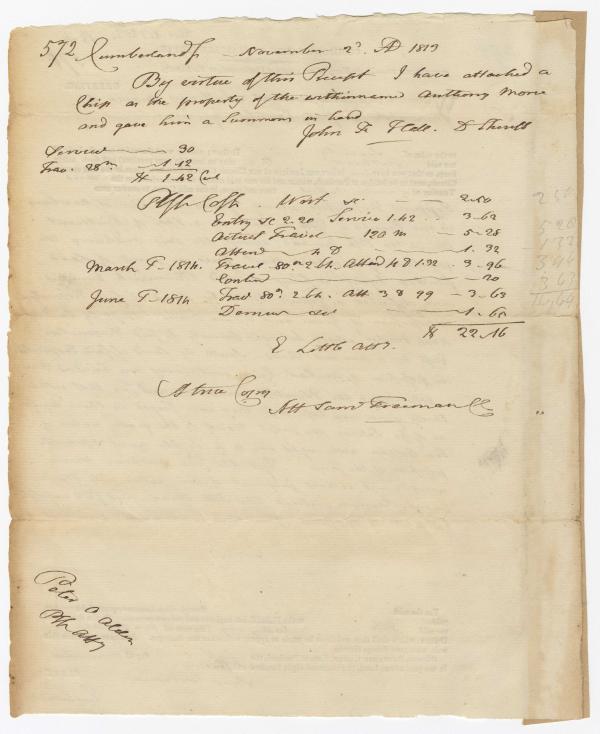 572 Cumberland ss November 2d AD 1813
By virtue of this Precept I have attached a
Chip as the property of the withinnamed Anthony Morse
and gave him a Summons in hand
John F Hall. D Sheriff
Service 30
Trav. 28m 1.12
$ 1.42
Plffs Costs. Writ &c. 2.50
Entry &c 2.20 Service 1.42 3-62
Actual Travel 120 m 5-28
Attend 4 D 1.32
March T- 1814. Travel 80m 2.64 Attend 4 D 1.32 3-96
Contin 20
June T- 1814 Trav 80m 2.64. Att 3 D 99 3-63
$ 22.16
E Little Atty.
A true Copy
Att Saml Freeman Clk
Peter O Alden
Plffs Atty